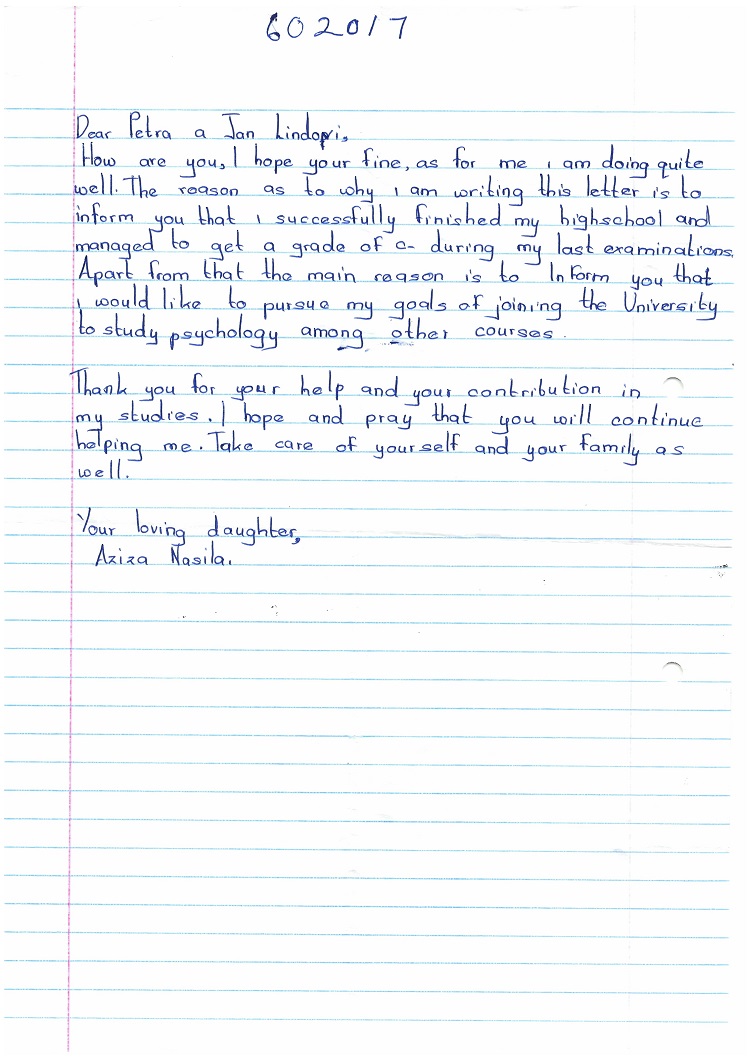 602017
Dear Petra a Jan Lindovi,
How are you, I hope your fine, as for me i am doing quite
well. The reason as to why i am writing this letter is to
inform you that i successfully finished my highschool and
managed to get a grade of c- during my last examinations.
Apart from that the main reason is to InForm you that
i would like to pursue my goals of joining the University
to study psychology among other courses.
Thank you for your help and your contribution in
my studies. I hope and pray that you will continue
helping me. Take care of yourself and your family as
well.
Your loving daughter,
Aziza Nasila.